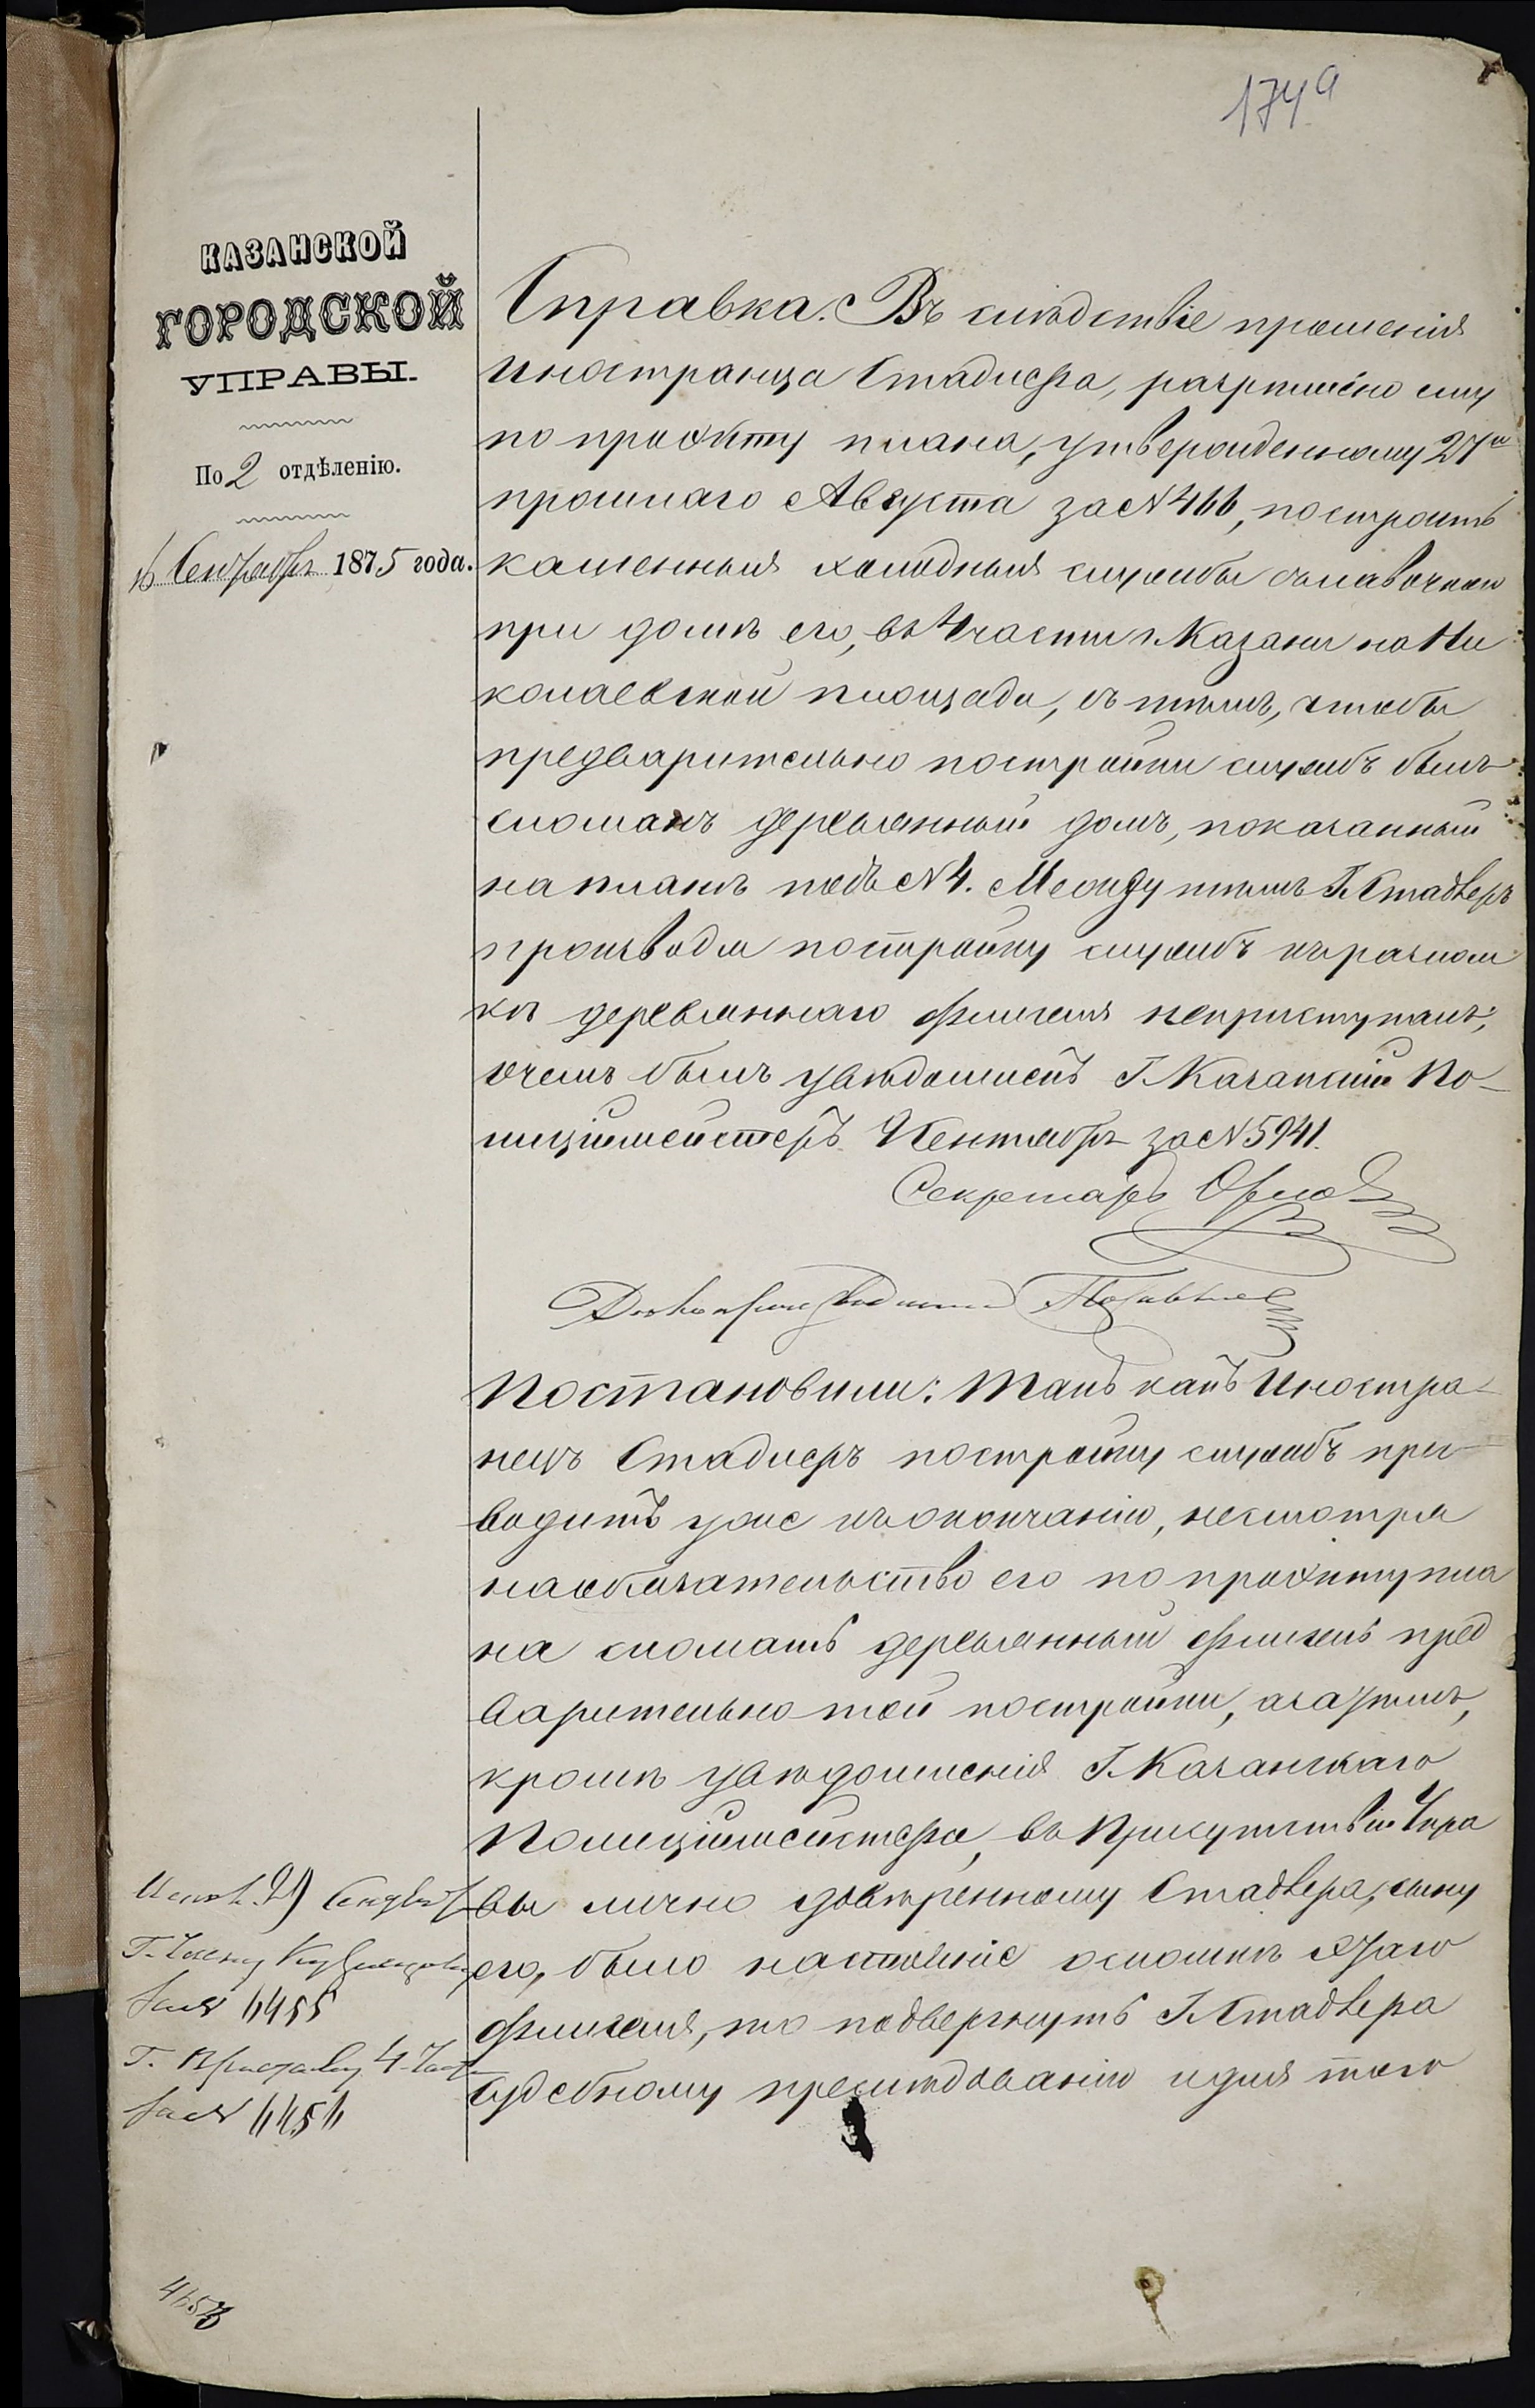 174а
КАЗАНСКОЙ
ГОРОДСКОЙ
УПРАВЫ.
По 2 отдѣленію.
16 Сентября 1875 года.
Справка. Въ слѣдствіе прошенія
Иностранца Стадлера, разрѣшено ему
по проэкту плана, утвержденному 27го
прошлаго Августа за № 466, построить
каменныя холодныя службы съ лавочкою
при домѣ его, въ 4 части г. Казани на Ни
колаевской площади, съ тѣмъ, чтобы
предварительно постройки службъ былъ
сломанъ деревянный домъ, показанный
на планѣ подъ № 4. Между тѣмъ Г. Стадлеръ
производя постройку службъ къ разлом
кѣ деревяннаго флигеля неприступаетъ,
о чемъ былъ увѣдомленъ Г. Казанскій По-
лиціймейстеръ 9 Сентября за № 5941.
Секретарь Орлов
Дѣлопроизводитель
Постановили: Такъ какъ Иностра-
нецъ Стадлеръ постройку службъ при-
водитъ уже къ окончанію, несмотря
на обязательство его по проэкту пла
на сломать деревянный флигель пред
варительно той постройки, а затѣмъ,
кромѣ увѣдомленія Г. Казанскаго
Полиціймейстера, въ Присутствіи Упра
вы лично довѣренному Стадлера, сыну
его, было настояніе о сломкѣ этаго
флигеля, то подвергнуть Г. Стадлера
Судебному преслѣдованію и для того
Испол. 29 Сентября
Г. Члену
за № 6455
Г. Приставу 4 Части
за № 6456